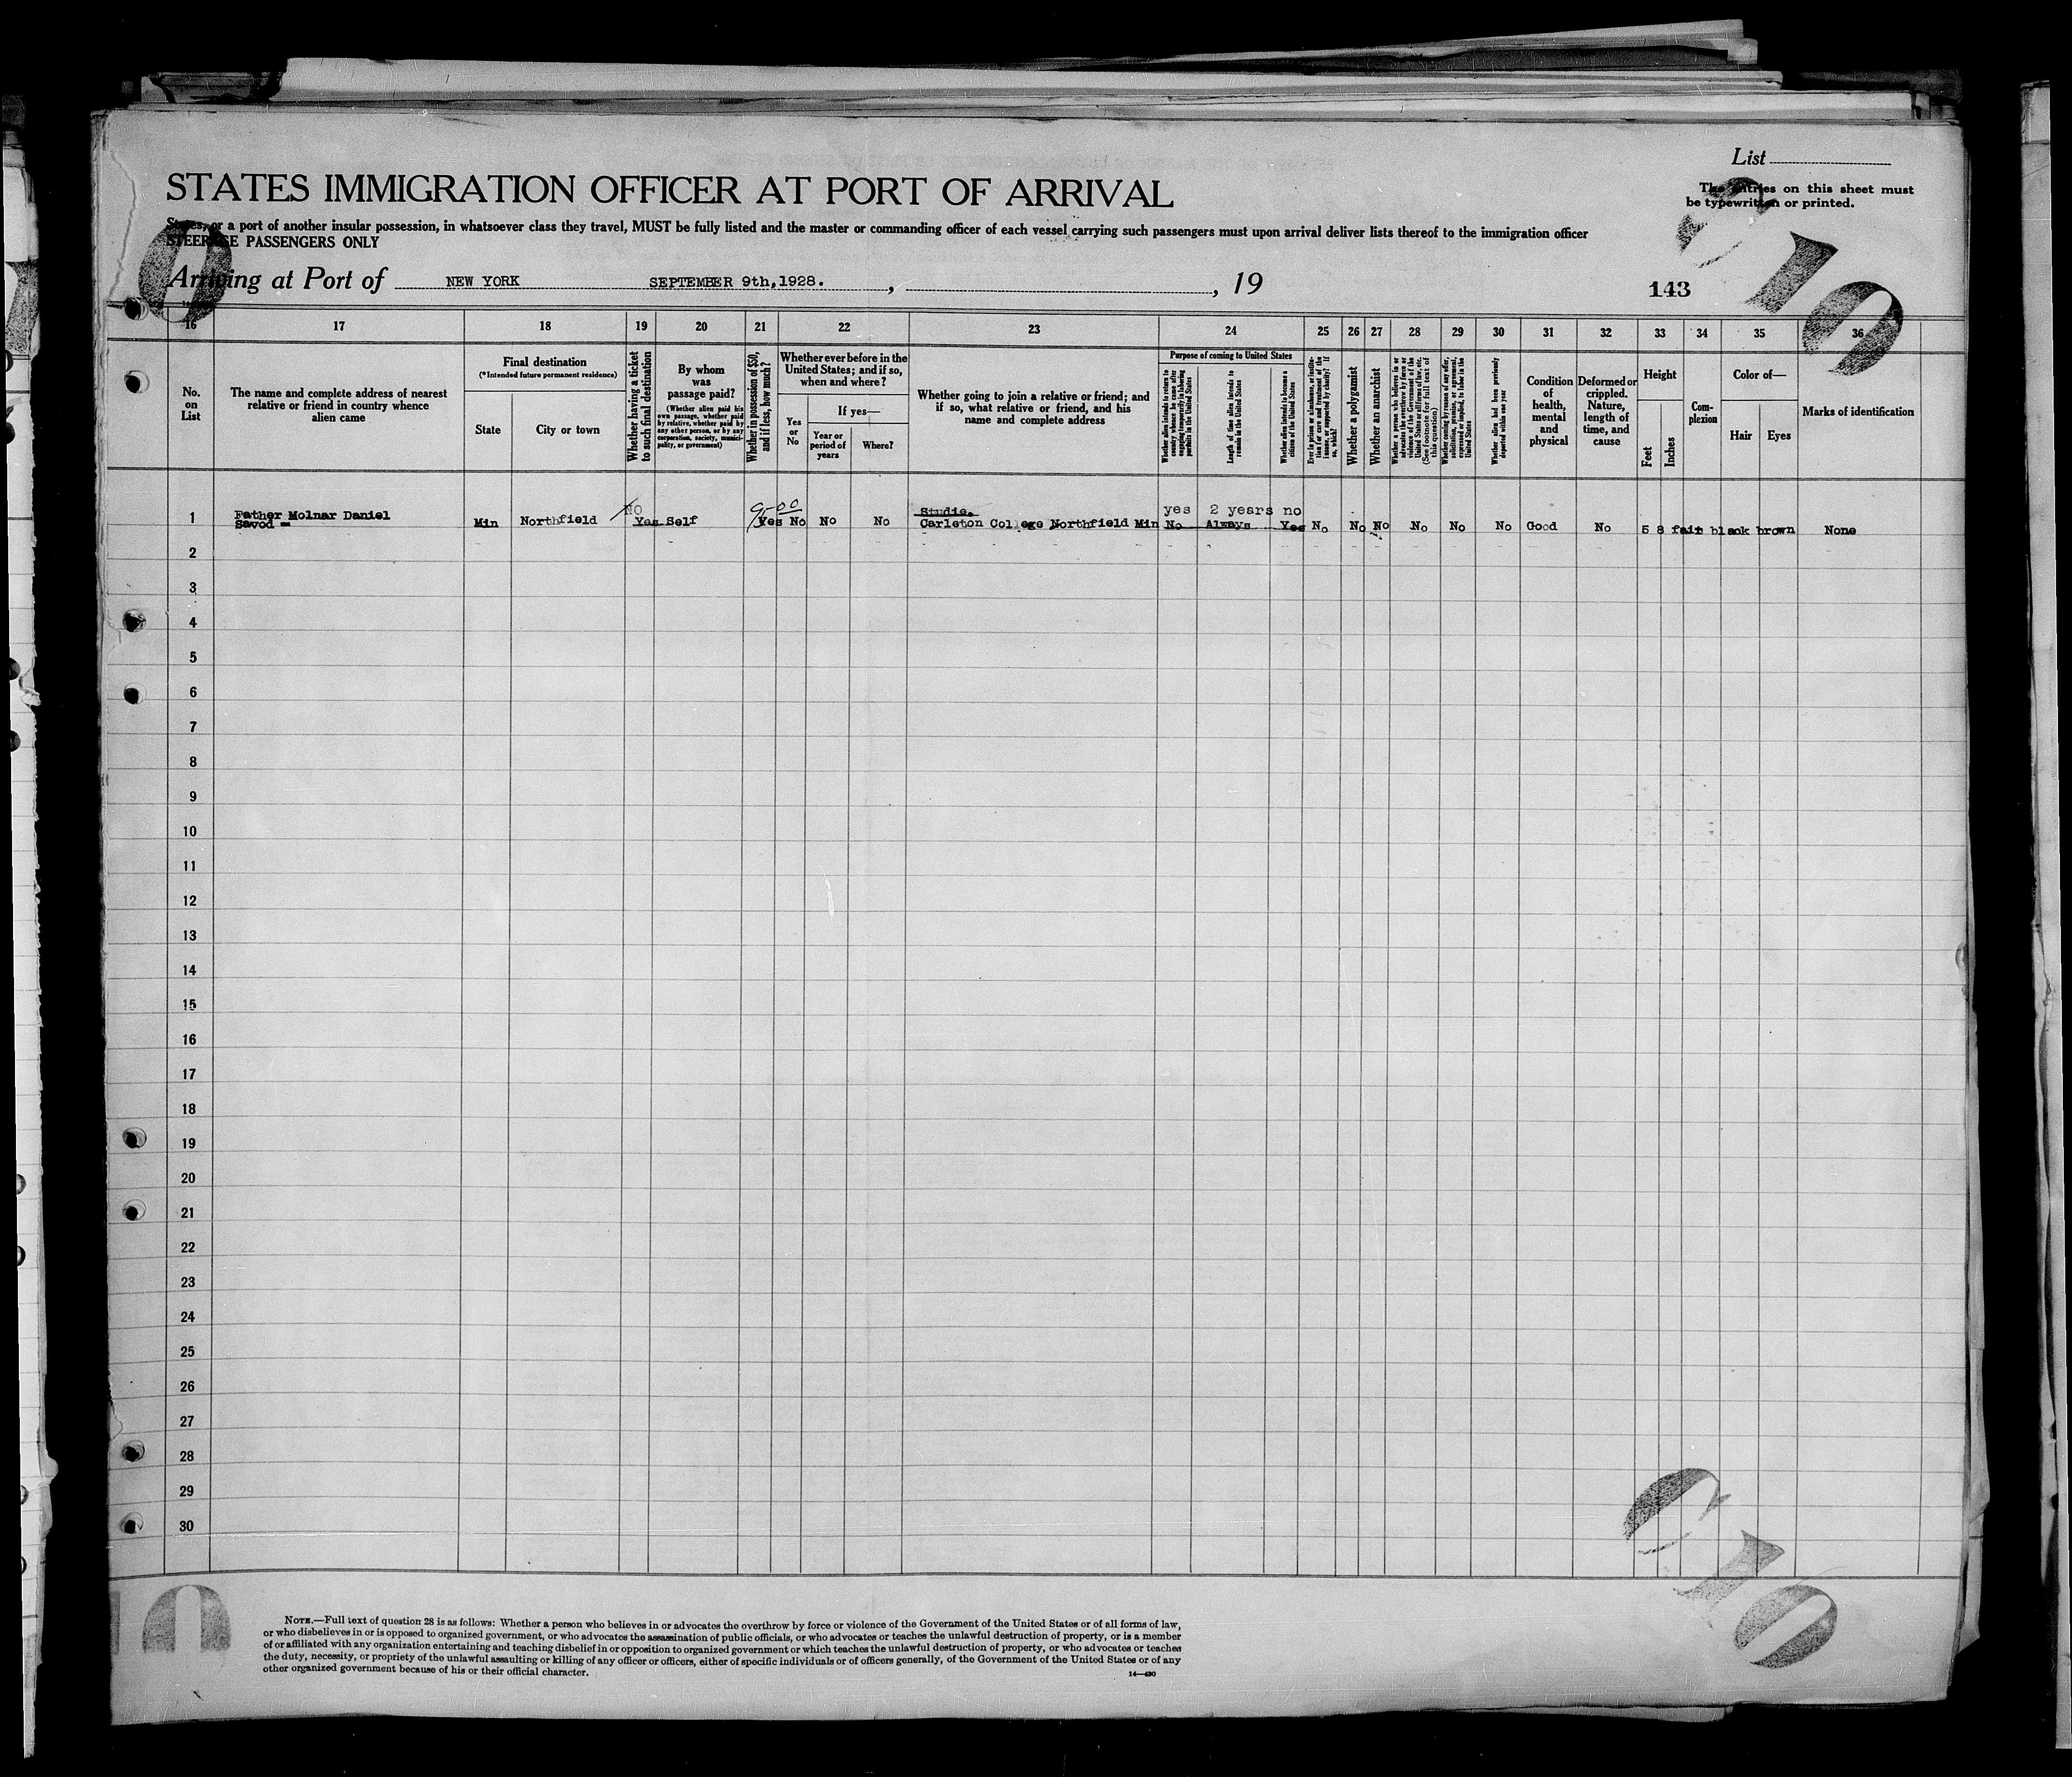 List
STATES IMMIGRATION OFFICER AT PORT OF ARRIVAL
The entries on this sheet must
be typewritten or printed.
States, or a port of another insular possession, in whatsoever class they travel, MUST be fully listed and the master or commanding officer of each vessel carrying such passengers must upon arrival deliver lists thereof to the immigration officer
STEERAGE PASSENGERS ONLY
Arriving at Port of NEW YORK SEPTEMBER 9th, 1928. , , 19
143
C 10
0
16 17 18 19 20 21 22 23 24 25 26 27 28 29 30 31 32 33 34 35 36
No. on List
The name and complete address of nearest relative or friend in country whence alien came
Final destination
(*Intended future permanent residence)
State
City or town
Whether having a ticket to such final destination
By whom was passage paid?
(Whether alien paid his own passage, whether paid by relative, whether paid by any other person, or by any corporation, society, municipality, or government)
Whether in possession of $50, and if less, how much?
Whether ever before in the United States; and if so, when and where?
Yes or No
If yes—
Year or period of years
Where?
Whether going to join a relative or friend; and if so, what relative or friend, and his name and complete address
Purpose of coming to United States
Whether alien intends to return to country whence he came after engaging temporarily in laboring pursuits in the United States
Length of time alien intends to remain in the United States
Whether alien intends to become a citizen of the United States
Ever in prison or almshouse, or institution for care and treatment of the insane, or supported by charity? If so, which?
Whether a polygamist
Whether an anarchist
Whether a person who believes in or advocates the overthrow by force or violence of the Government of the United States or all forms of law, etc. (See footnote for full text of this question)
Whether coming by reason of any offer, solicitation, promise, or agreement, expressed or implied, to labor in the United States
Whether alien had been previously deported within one year
Condition of health, mental and physical
Deformed or crippled. Nature, length of time, and cause
Height
Feet
Inches
Complexion
Color of—
Hair
Eyes
Marks of identification
NO 50.00 Studie. yes 2 years no
1 Father Molnar Daniel Min Northfield Yes Self Yes No No No Carleton College Northfield Min No Always Yes No No No No No No Good No 5 8 fair black brown None
Savod -
2
3
4
5
6
7
8
9
10
11
12
13
14
15
16
17
18
19
20
21
22
23
24
25
26
27
28
29
30
C 10
10
NOTE.—Full text of question 28 is as follows: Whether a person who believes in or advocates the overthrow by force or violence of the Government of the United States or of all forms of law,
or who disbelieves in or is opposed to organized government, or who advocates the assassination of public officials, or who advocates or teaches the unlawful destruction of property, or is a member
of or affiliated with any organization entertaining and teaching disbelief in or opposition to organized government or which teaches the unlawful destruction of property, or who advocates or teaches
the duty, necessity, or propriety of the unlawful assaulting or killing of any officer or officers, either of specific individuals or of officers generally, of the Government of the United States or of any
other organized government because of his or their official character.
14—430